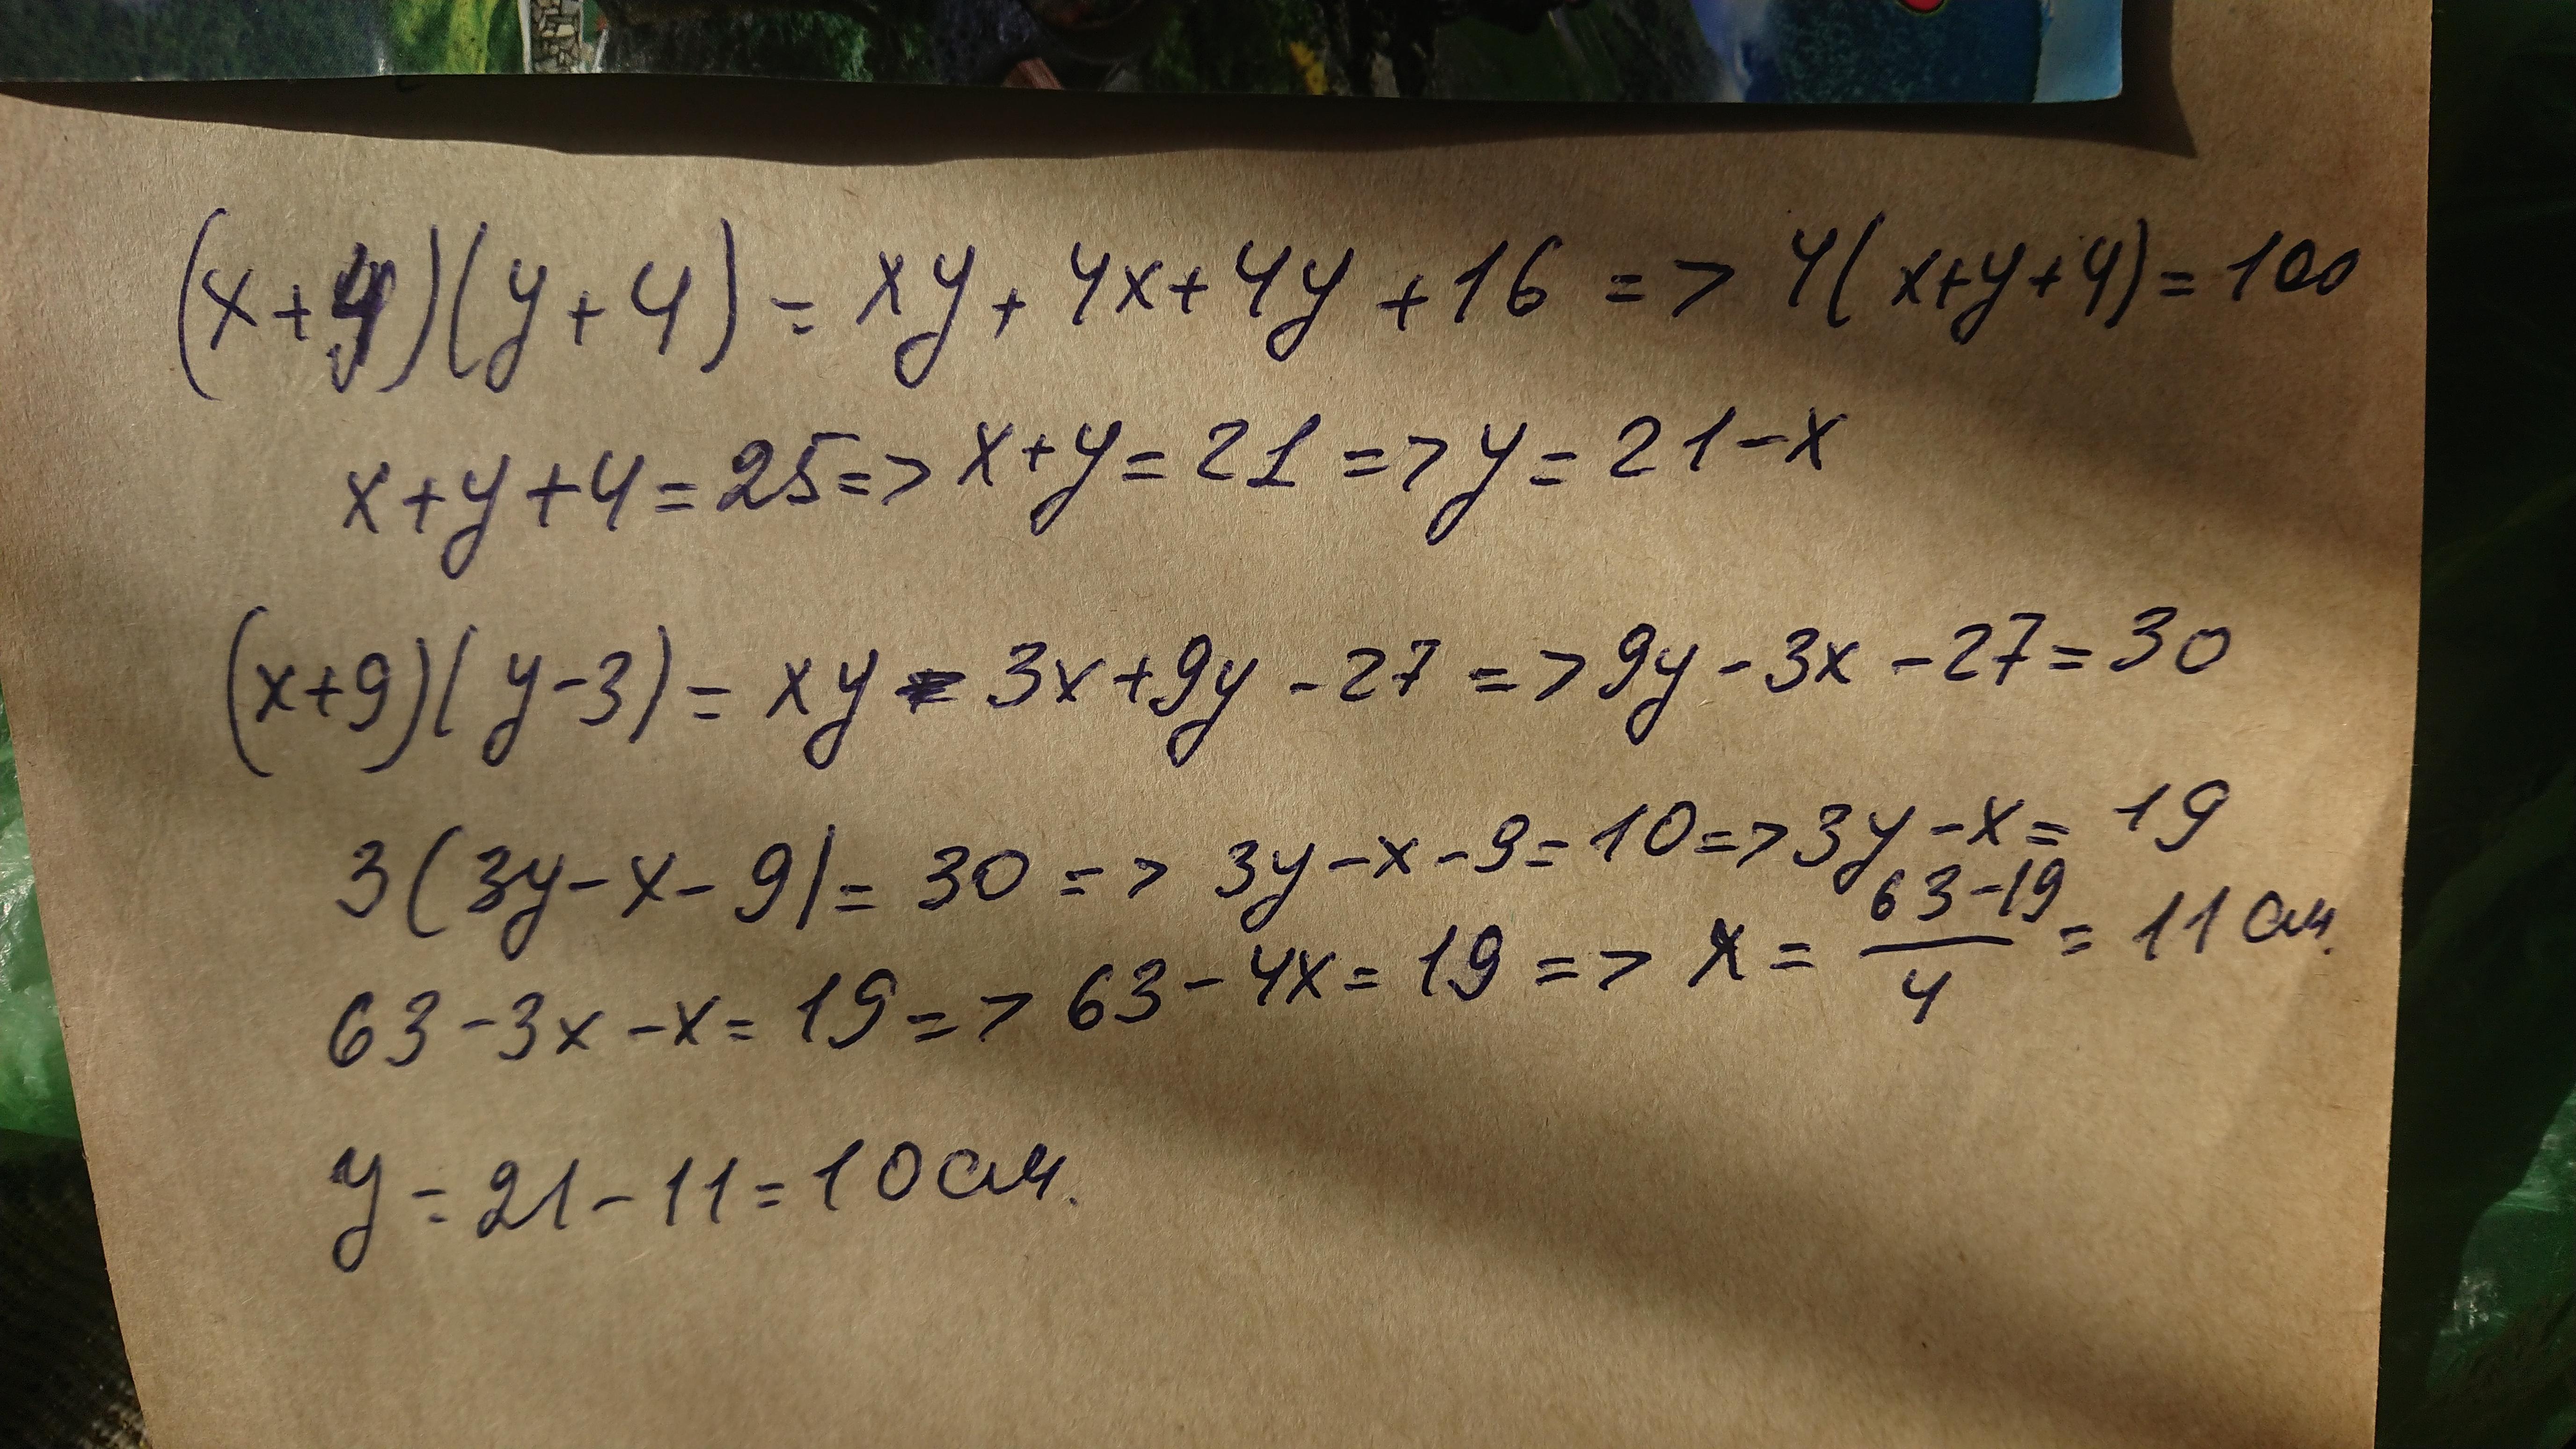 (x+4)(y+4) = xy + 4x+4y +16 => 4(x+y+4)=100
x+y+4=25=> x+y=21=>y=21-x
(x+9)(y-3)= xy - 3x+9y-27 =>9y-3x-27=30
3(3y-x-9)=30 => 3y-x-9=10=>3y-x=19
63-3x-x=19=> 63-4x=19=> x= (63-19)/4 = 11 см.
y=21-11=10 см.